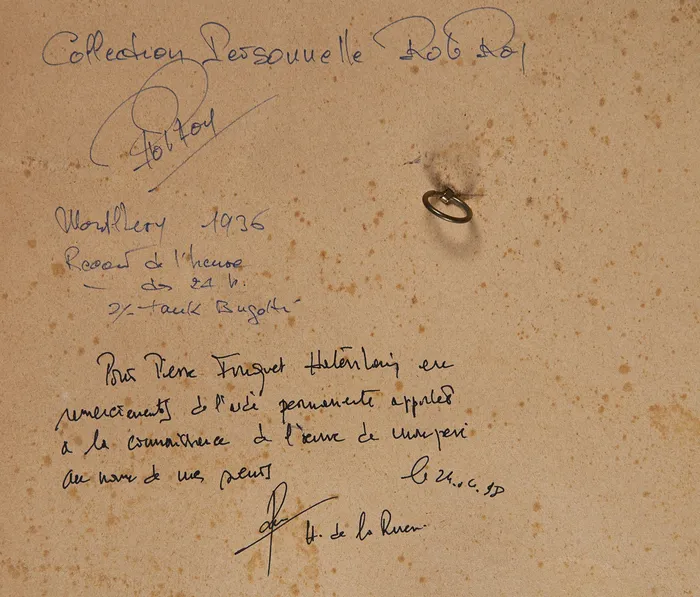 Collection Personnelle Rob Roy
Rob Roy
Montlhery 1936
Record de l'heure
— des 24 h.
s/- tank Bugatti
Pour Pierre Fouquet Hatevilain en
remerciements de l'aide permanente apportée
à la connaissance de l'œuvre de mon père
au nom de mes parents
le 24. 98
H. de la